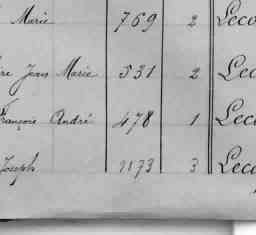 Marie 769 2 Leco
re Jean Marie 531 2 Lec
François André 478 1 Lecc
Joseph 1173 3 Lecc